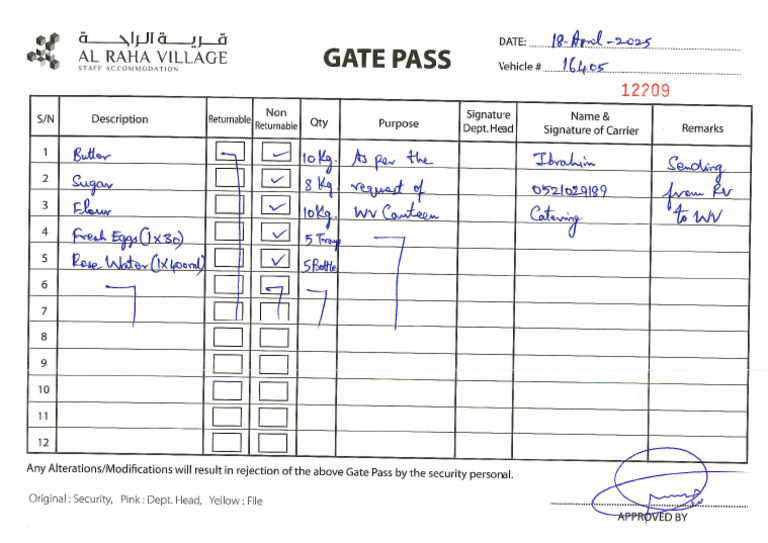 قرية الراحة
AL RAHA VILLAGE
STAFF ACCOMMODATION
GATE PASS
DATE: 18-April-2025
Vehicle # 16405
12209
S/N Description Returnable Non Returnable Qty Purpose Signature Dept. Head Name & Signature of Carrier Remarks
1 Butter 10 Kg. As per the Ibrahim Sending
2 Sugar 8 Kg. request of 0521029189 from RV
3 Flour 10 Kg. WV Canteen Catering to WV
4 Fresh Eggs (1 x 30) 5 Tray
5 Rose Water (1 x 400ml) 5 Bottle
6
7
8
9
10
11
12
Any Alterations/Modifications will result in rejection of the above Gate Pass by the security personal.
Original : Security, Pink : Dept. Head, Yellow : File
APPROVED BY